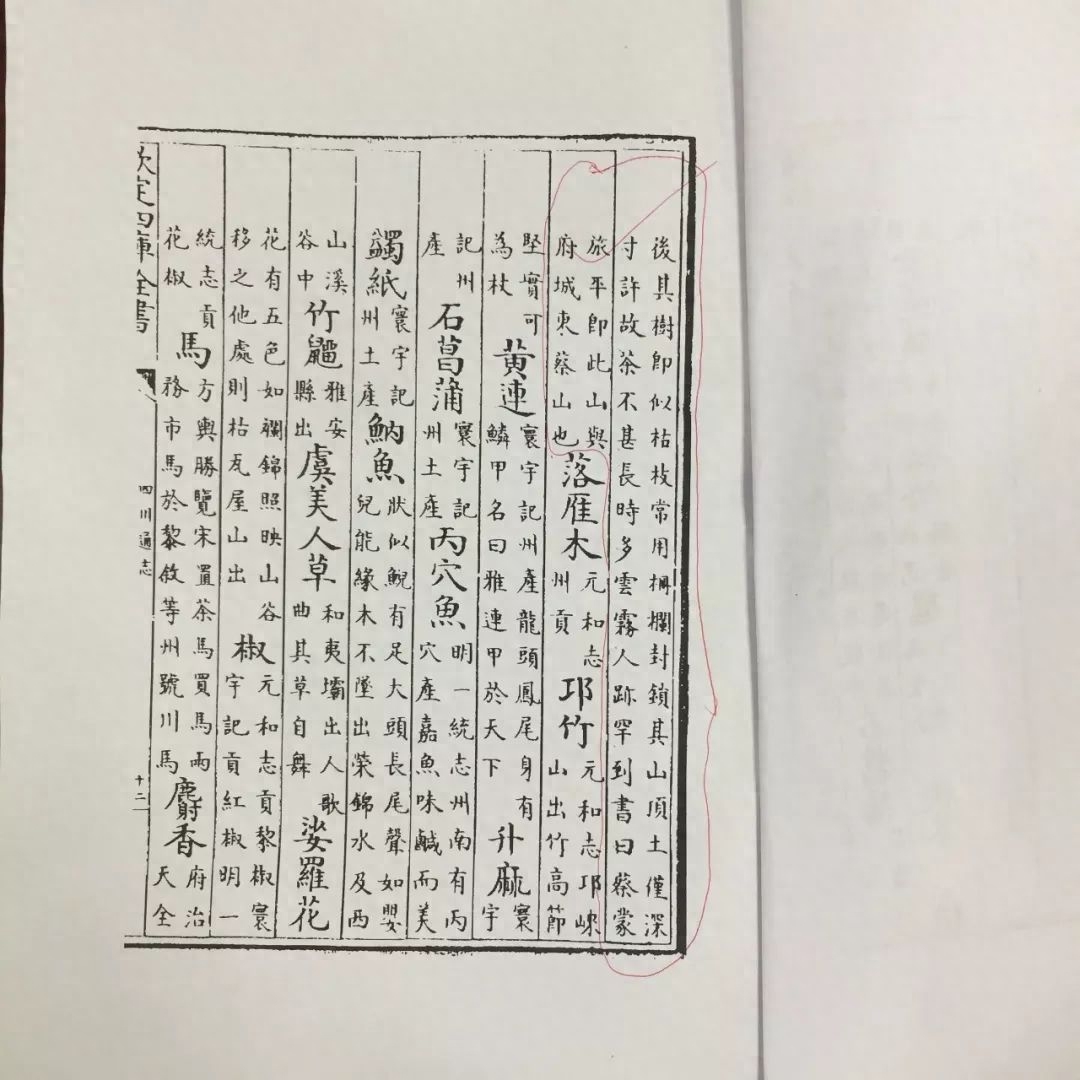 後其樹即似枯枝常用柵欄封鎖其山頂土僅深
寸許故茶不甚長時多雲霧人跡罕到書曰蔡蒙
旅平即此山與府城東蔡山也落雁木元和志州貢邛竹元和志邛崍山出竹高節
堅實可為杖黄連寰宇記州產龍頭鳳尾身有鱗甲名曰雅連甲於天下升麻寰宇
記州產石菖蒲寰宇記州土產丙穴魚明一統志州南有丙穴產嘉魚味鹹而美
蠲紙寰宇記州土產魶魚狀似鯢有足大頭長尾聲如嬰兒能緣木不墜出榮錦水及西
山溪谷中竹䶉雅安縣出虞美人草和夷壩出人歌曲其草自舞娑羅花
花有五色如襴錦照映山谷移之他處則枯瓦屋山出椒元和志貢黎椒寰宇記貢紅椒明一
統志貢花椒馬方輿勝覽宋置茶馬買馬兩務市馬於黎敘等州號川馬麝香府治天全
欽定四庫全書
四川通志
十二